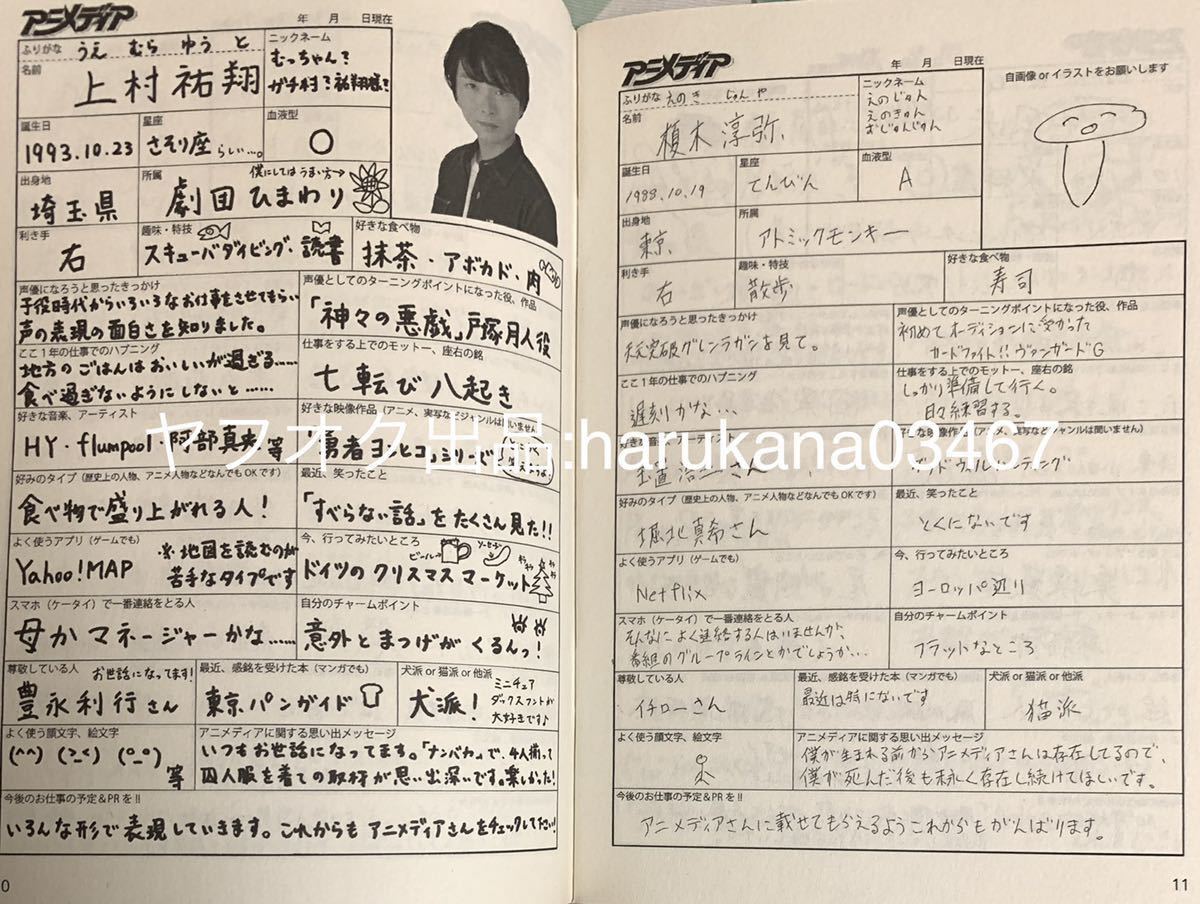 アニメディア
年 月 日現在
ふりがな うえ むら ゆう と
名前 上村祐翔
ニックネーム
むっちゃん?
ガチ村?祐翔様?
誕生日
1993.10.23
星座
さそり座らしい…。
血液型
O
出身地
埼玉県
所属
僕にしてはうまい方→
劇団ひまわり
利き手
右
趣味・特技
スキューバダイビング・読書
好きな食べ物
抹茶・アボカド・肉
声優になろうと思ったきっかけ
子役時代からいろいろなお仕事をさせてもらい
声の表現の面白さを知りました。
声優としてのターニングポイントになった役、作品
「神々の悪戯」戸塚月人役
ここ1年の仕事でのハプニング
地方のごはんはおいしいが過ぎる……
食べ過ぎないようにしないと……
仕事をする上でのモットー、座右の銘
七転び八起き
好きな音楽、アーティスト
HY・flumpool・阿部真央 等
好きな映像作品(アニメ、実写などジャンルは問いません)
「勇者ヨシヒコ」シリーズ
好みのタイプ(歴史上の人物、アニメ人物などなんでもOKです)
食べ物で盛り上がれる人!
最近、笑ったこと
「すべらない話」をたくさん見た!!
よく使うアプリ(ゲームでも)
Yahoo!MAP
※地図を読むのが
苦手なタイプです
今、行ってみたいところ
ビール→
ソーセージ
ドイツのクリスマスマーケット
スマホ(ケータイ)で一番連絡をとる人
母かマネージャーかな……
自分のチャームポイント
意外とまつげがくるんっ!
尊敬している人
お世話になってます!
豊永利行さん
最近、感銘を受けた本(マンガでも)
東京パンガイド
犬派 or 猫派 or 他派
犬派!
ミニチュア
ダックスフントが
大好きです♪
よく使う顔文字、絵文字
(^^) (>_<) (°_°) 等
アニメディアに関する思い出メッセージ
いつもお世話になってます。「ナンバカ」で、4人揃って
囚人服を着ての取材が思い出深いです。楽しかった!
今後のお仕事の予定&PRを!!
いろんな形で表現していきます。これからもアニメディアさんをチェックして下さい!
0
アニメディア
年 月 日現在
自画像 or イラストをお願いします
ふりがな えのき じゅん や
名前 榎木淳弥
ニックネーム
えのじゅん
えのきゅん
おじゅんじゅん
誕生日
1988.10.19
星座
てんびん
血液型
A
出身地
東京
所属
アトミックモンキー
利き手
右
趣味・特技
散歩
好きな食べ物
寿司
声優になろうと思ったきっかけ
天元突破グレンラガンを見て。
声優としてのターニングポイントになった役、作品
初めてオーディションに受かった
カードファイト!!ヴァンガードG
ここ1年の仕事でのハプニング
遅刻かな…
仕事をする上でのモットー、座右の銘
しっかり準備して行く。
日々練習する。
好きな音楽、アーティスト
玉置浩二さん
好きな映像作品(アニメ、実写などジャンルは問いません)
グッドウィルハンティング
ヤフオク出品:harukana03467
好みのタイプ(歴史上の人物、アニメ人物などなんでもOKです)
堀北真希さん
最近、笑ったこと
とくにないです
よく使うアプリ(ゲームでも)
Netflix
今、行ってみたいところ
ヨーロッパ辺り
スマホ(ケータイ)で一番連絡をとる人
そんなによく連絡する人はいませんが、
番組のグループラインとかでしょうか…
自分のチャームポイント
フラットなところ
尊敬している人
イチローさん
最近、感銘を受けた本(マンガでも)
最近は特にないです
犬派 or 猫派 or 他派
猫派
よく使う顔文字、絵文字
アニメディアに関する思い出メッセージ
僕が生まれる前からアニメディアさんは存在してるので、
僕が死んだ後も永く存在し続けてほしいです。
今後のお仕事の予定&PRを!!
アニメディアさんに載せてもらえるようこれからもがんばります。
11